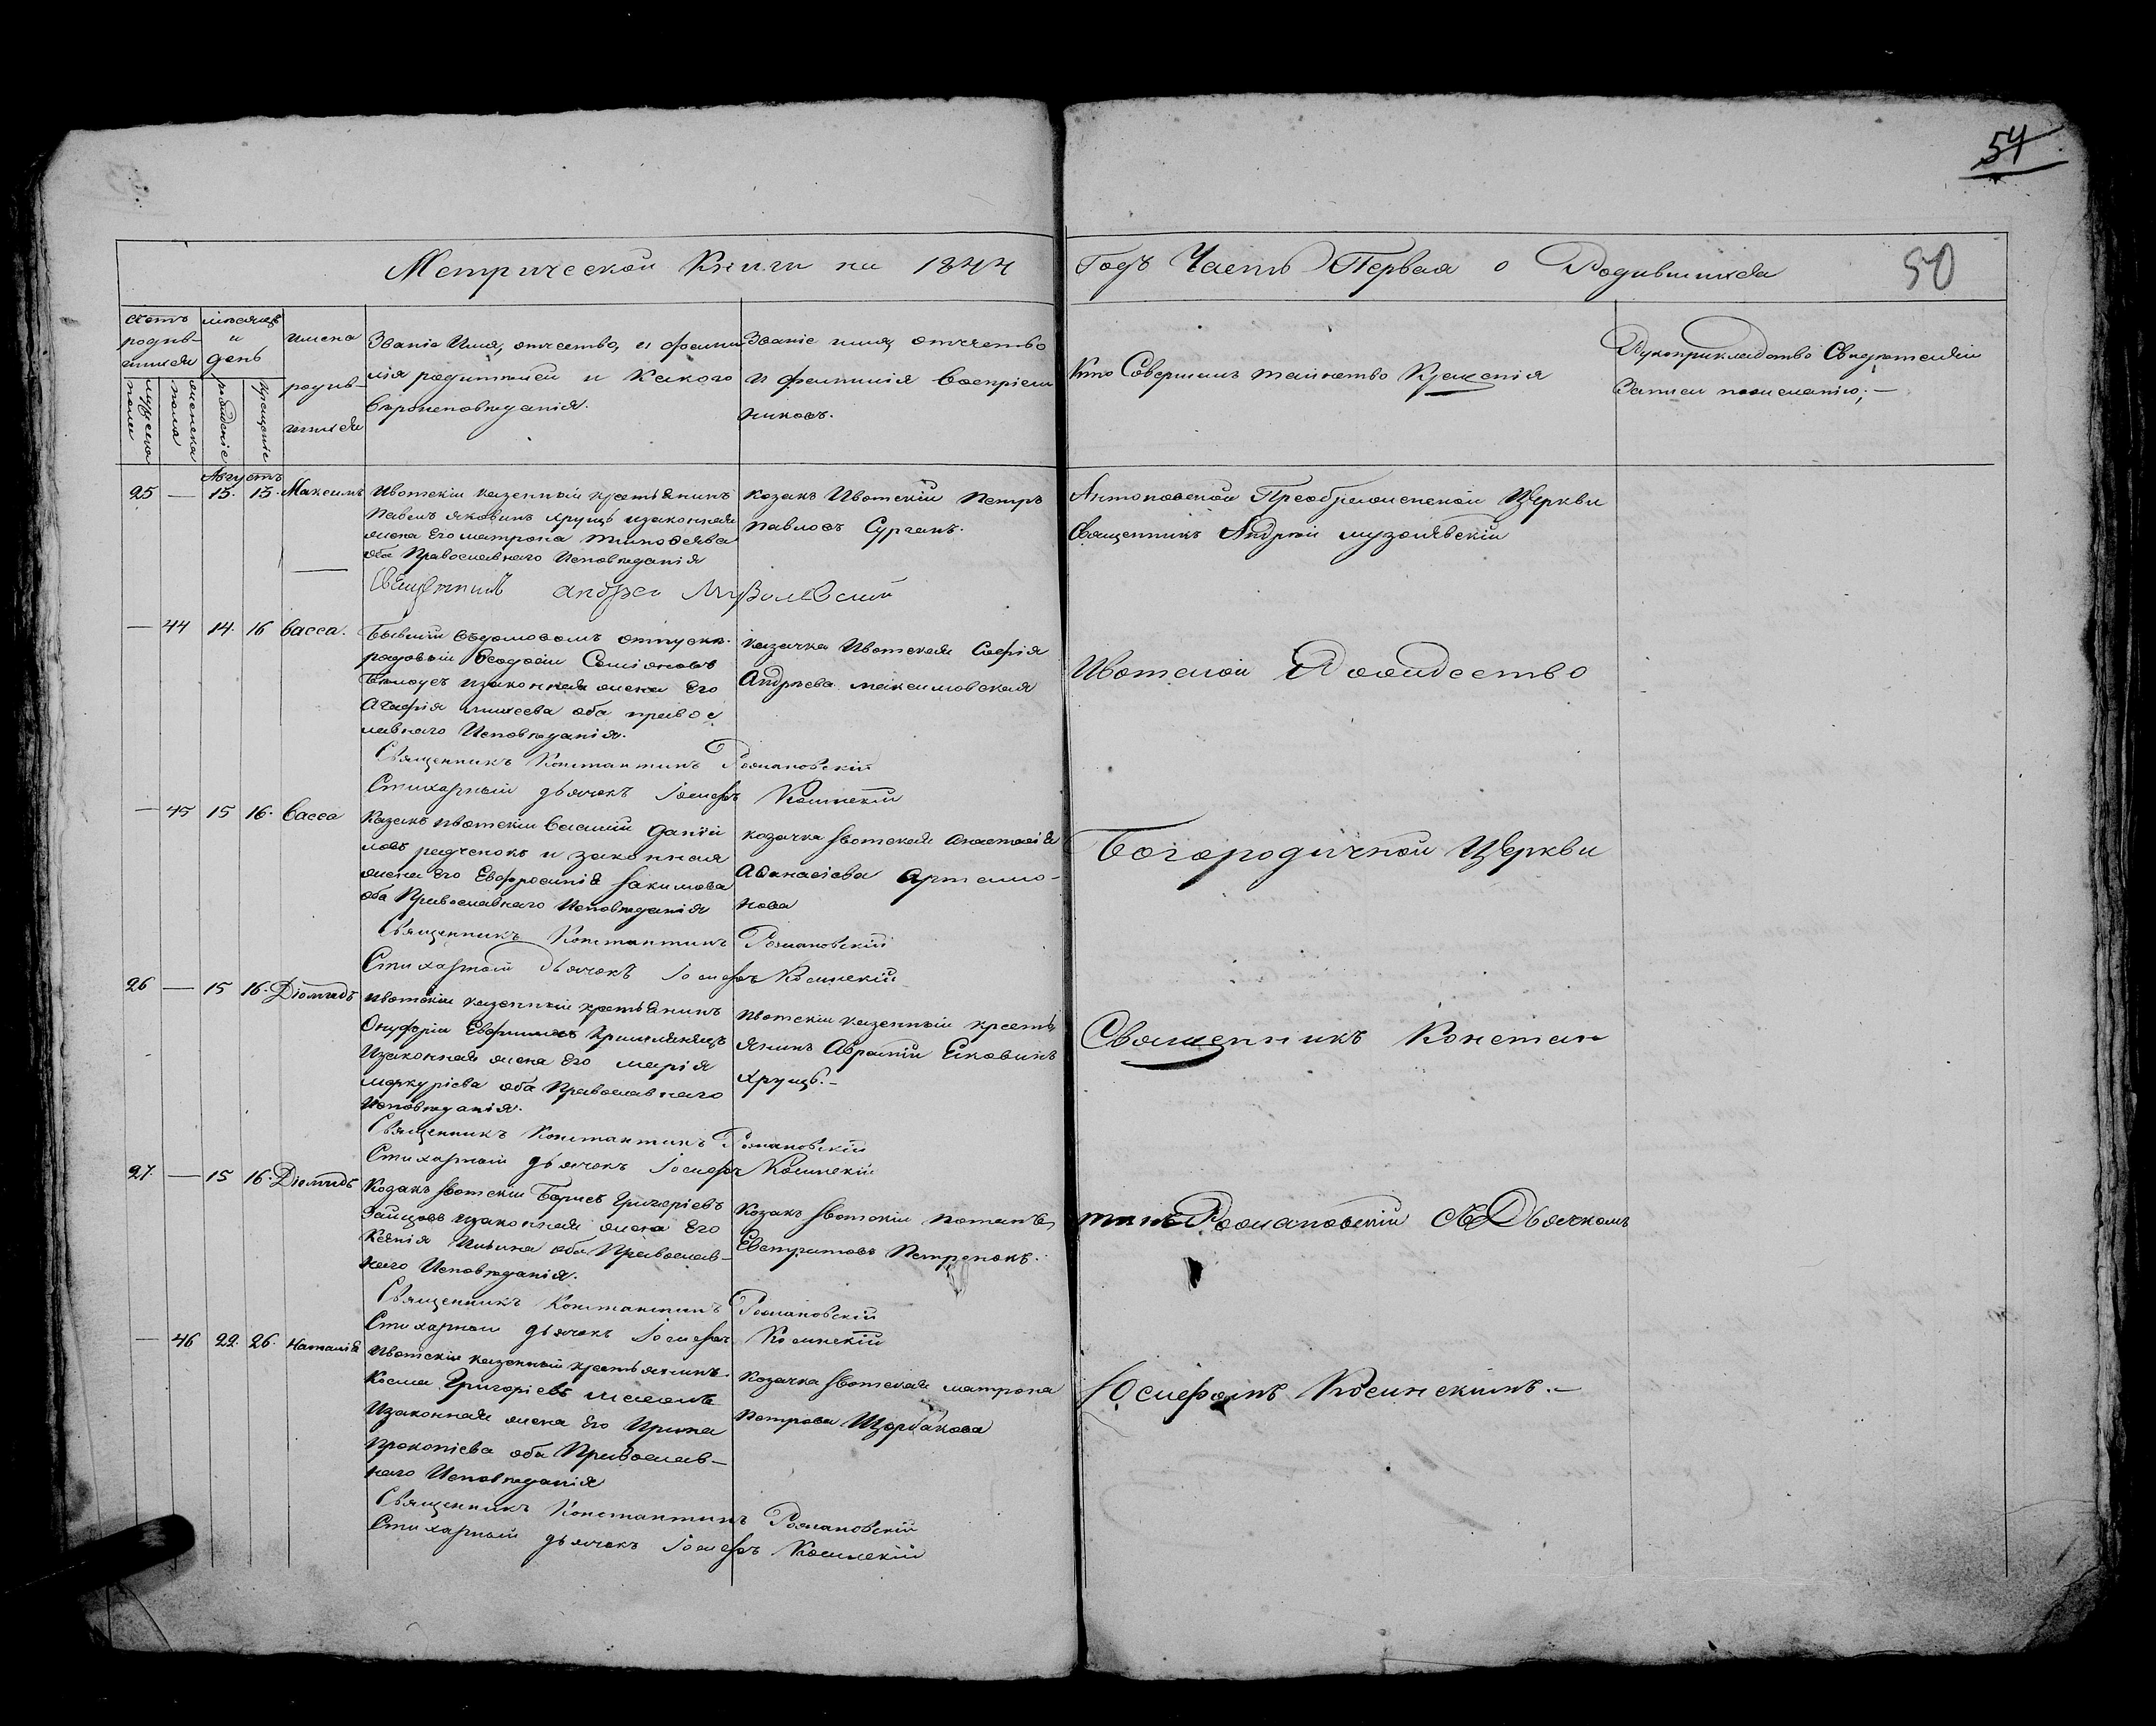 54
Метрической Книги на 1844 Годъ Часть Первая о Родившихся 50
счетъ родив-шихся
мужеска пола
женска пола
мѣсяцъ и день
рожденіе
крещеніе
имена родив-шихся
Званіе Имя, отчество, и фами
лія родителей и Какого
вѣроисповѣданія.
Званіе имя отчество
и фамилія воспріем
никовъ.
Кто Совершалъ таинство Крещенія
Рукоприкладство Свидѣтелей
Записи по желанію;—
Августъ
25 — 13. 13. Максимъ
Ивотскій казенный крестьянинъ
Павелъ Яковинъ Хрущъ изаконная
жена Его матрона
оба Православнаго Исповѣданія
козакъ Ивотскій Петръ
павловъ Сурганъ.
Антоновской Преображенской Церкви
Священникъ Андрей музолѣвскій
Священникъ андрей Музолевский
— 44 14. 16 Васса.
Бывшій отпускн.
рядовый Ѳеодосій Семіоновъ
Бѣлоусъ изаконная жена Его
Агафія михеева оба правос
лавнаго Исповѣданія.
казачка Ивотская Софія
Андрѣева максимовская
Ивотской Рождество
Священникъ Константинъ Романовскій
Стихарный дьячокъ Іосифъ Косинскій
— 45 15 16. Васса
Казакъ ивотскій Василій Даніи
ловъ редченокъ и законная
жена Его Евфросинія Іакимова
оба Православнаго Исповѣданія
козачка Ивотская анастасія
Аѳанасіева Артемо-
нова
Богородичной Церкви
Священникъ Константинъ Романовскій
Стихарный дьячокъ Іосифъ Косинскій
26 — 15 16. Діомидъ
ивотскій казенный крестьянинъ
Онуфрій Евфимовъ
Изаконная жена Его марія
меркуріева оба Православнаго
Исповѣданія.
ивотскій казенный кресть
янинъ Аврамій Еиковинъ
хрущъ.-
Священникъ Констан
Священникъ Константинъ Романовскій
Стихарный дьячокъ Іосифъ Косинскій
27. — 15 16. Діомидъ
Козакъ Ивотскій Борисъ Григоріевъ
Зайцовъ изаконная жена Его
Ксенія Ильина оба Православ-
наго Исповѣданія.
Козакъ Ивотскій потапъ
Евстратовъ Петренокъ.
тинъ Романовскій съ Дьячкомъ
Священникъ Константинъ Романовскій
Стихарный дьячокъ Іосифъ Косинскій
— 46 22. 26. Наталія
Ивотскій казенный крестьянинъ
Косма Григоріевъ
Изаконная жена Его Ирина
Прокопіева оба Православ-
наго Исповѣданія
Козачка Ивотская матрона
Петрова Щербакова
Іосифомъ Косинскимъ.—
Священникъ Константинъ Романовскій
Стихарный дьячокъ Іосифъ Косинскій